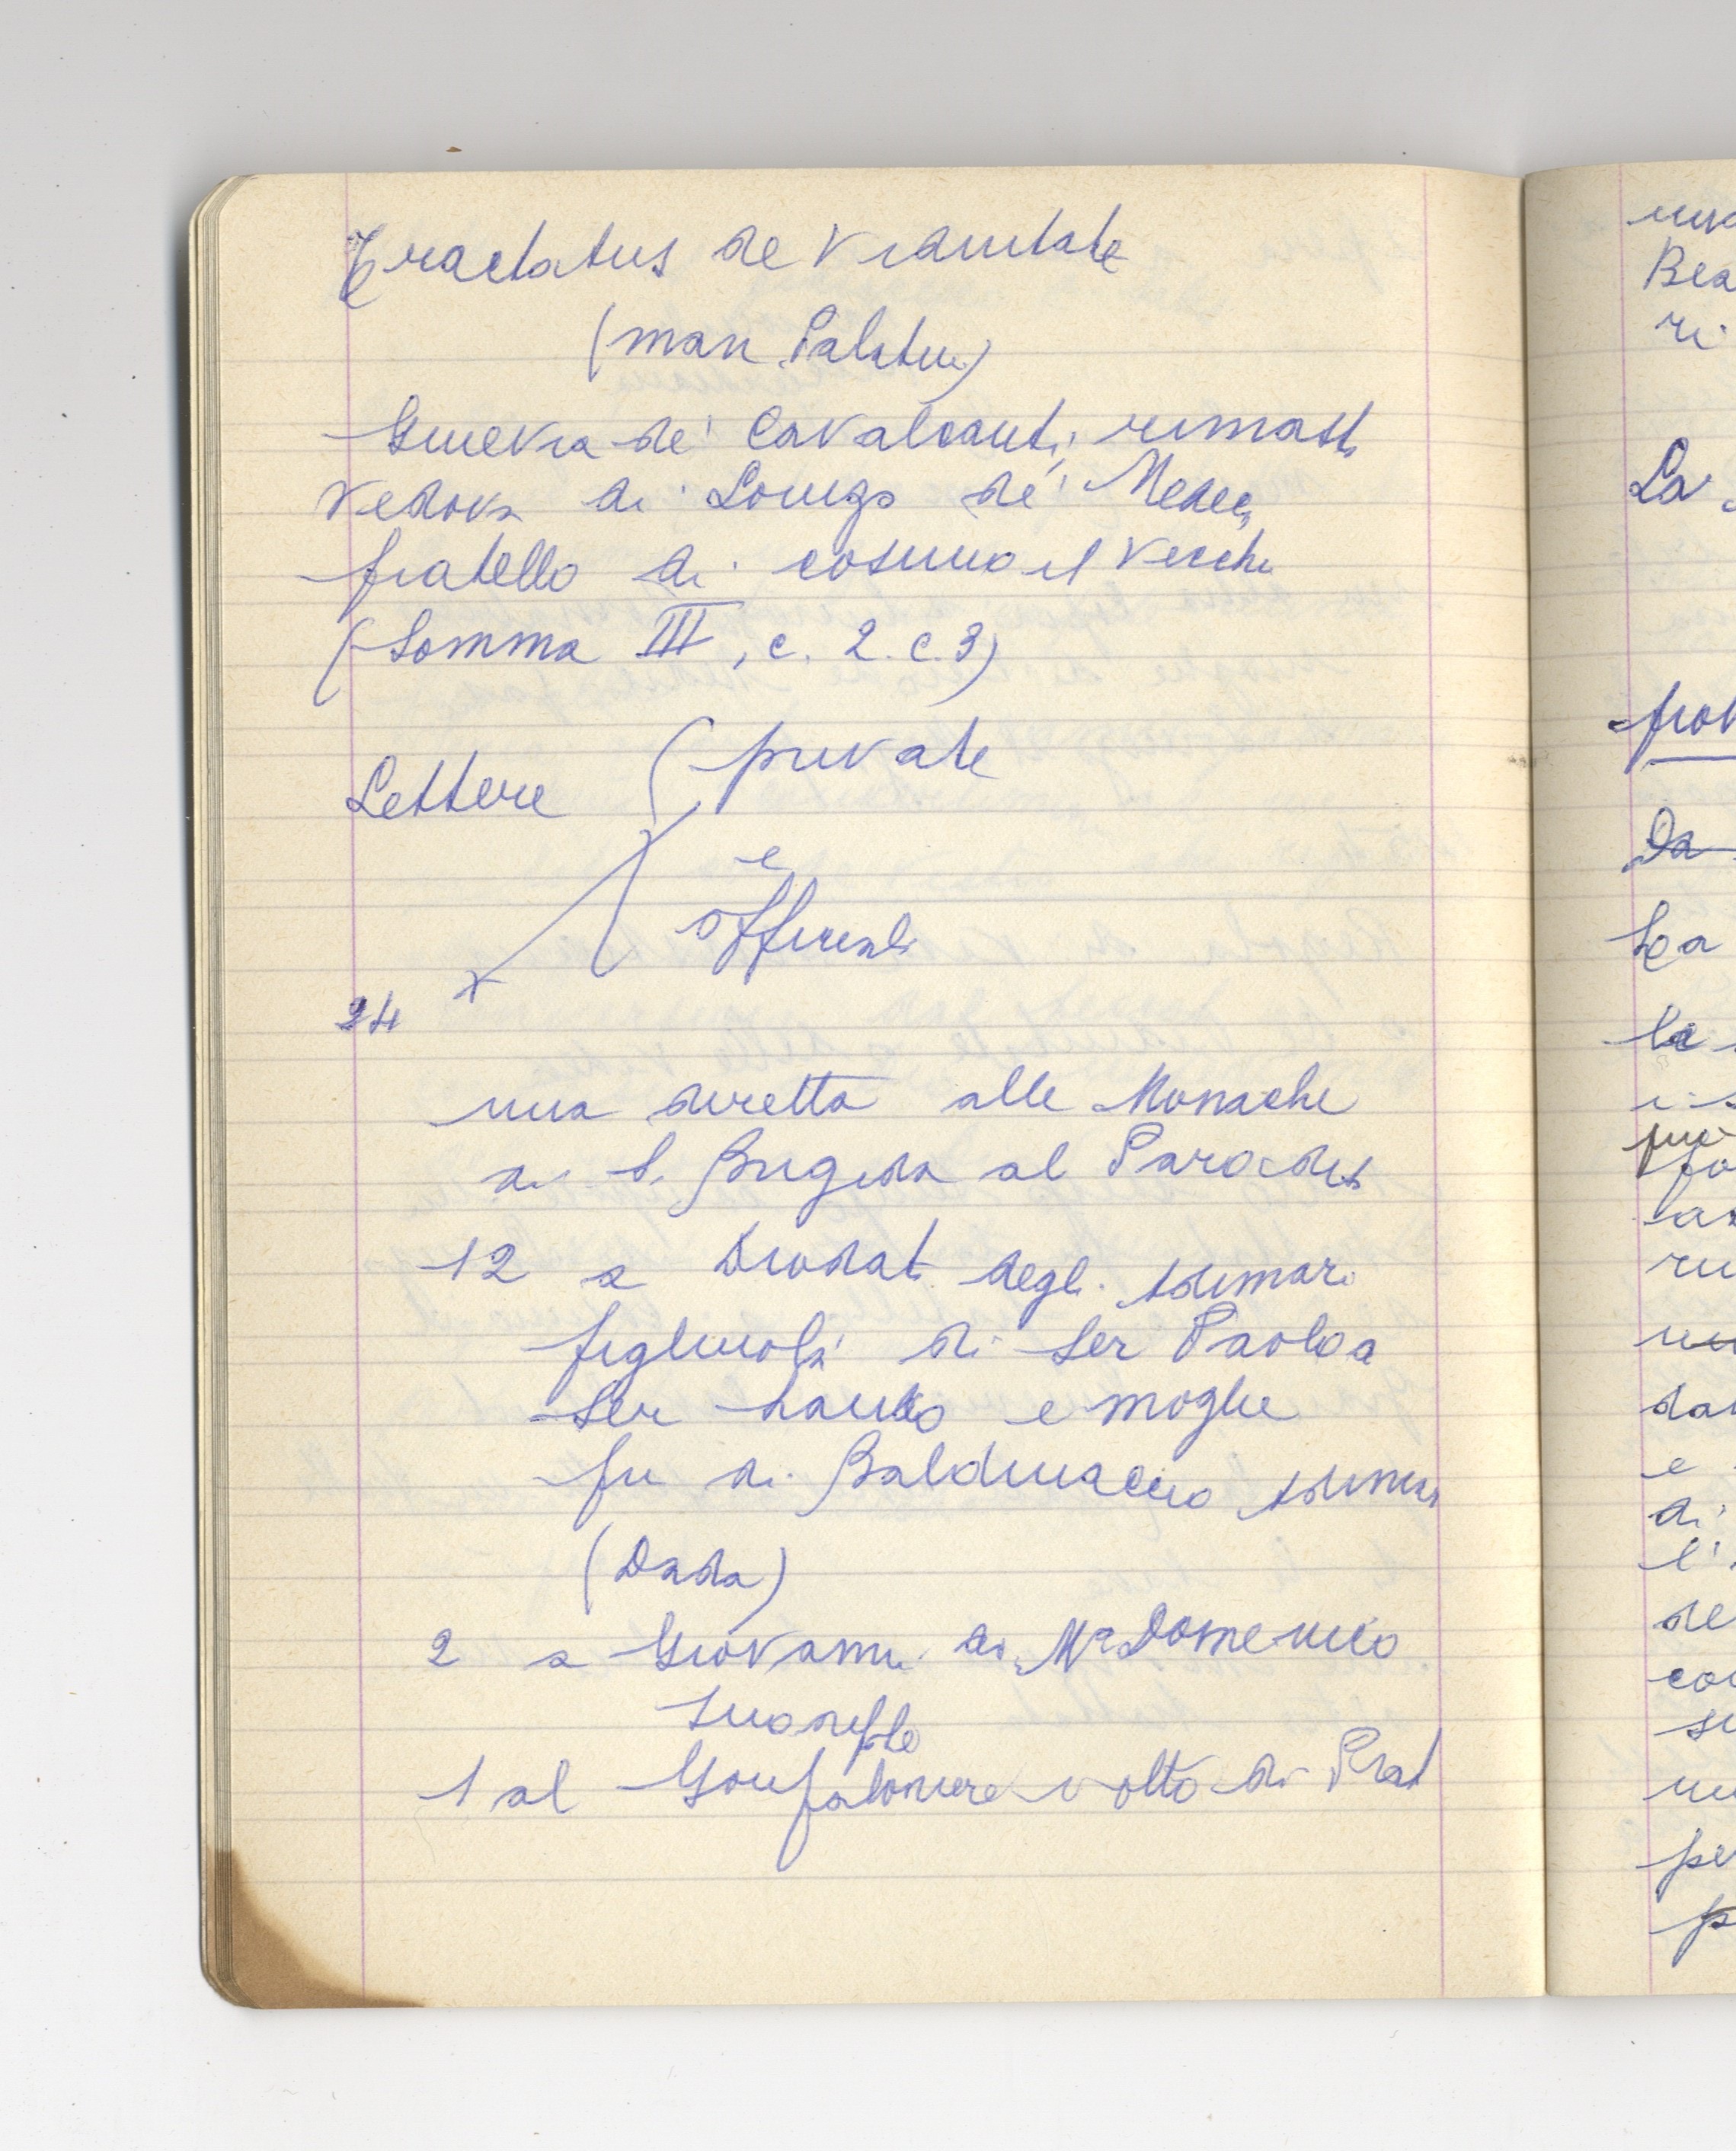 Tractatus de Viduitate
(man Palatin)
Ginevra de' Cavalcanti, rimasta
vedova di Lorenzo de' Medici,
fratello di Cosimo il Vecchio
(Somma III, c. 2. c. 3)
Lettere ( private
e
officiali
24
una diretta alle Monache
di S. Brigida al Paradiso
12 a Diodata degli Adimari
figliuola di Ser Paolo a
Ser e moglie
fu di Baldinaccio Adimari
(Dada)
2 a Giovanni di Mr Domenico
1 al Gonfaloniere e otto di Prato
uno
Bea
ri
La
prov
Da
La
la
più
fo
ru
dal
e
di
l'
de
co
su
pe
p